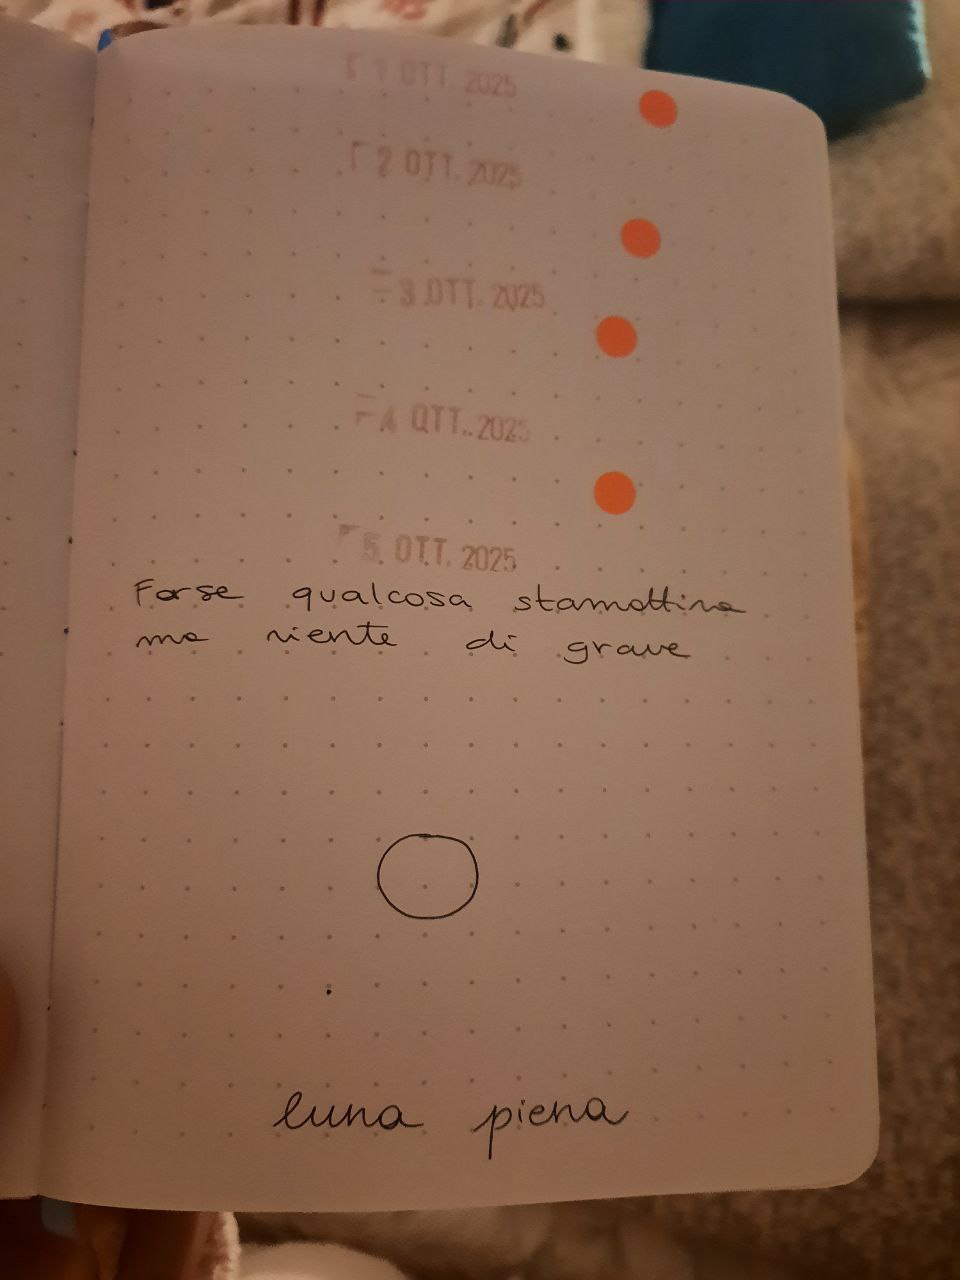 1 OTT. 2025
2 OTT. 2025
3 OTT. 2025
4 OTT. 2025
5. OTT. 2025
Forse qualcosa stamattina
ma niente di grave
luna piena